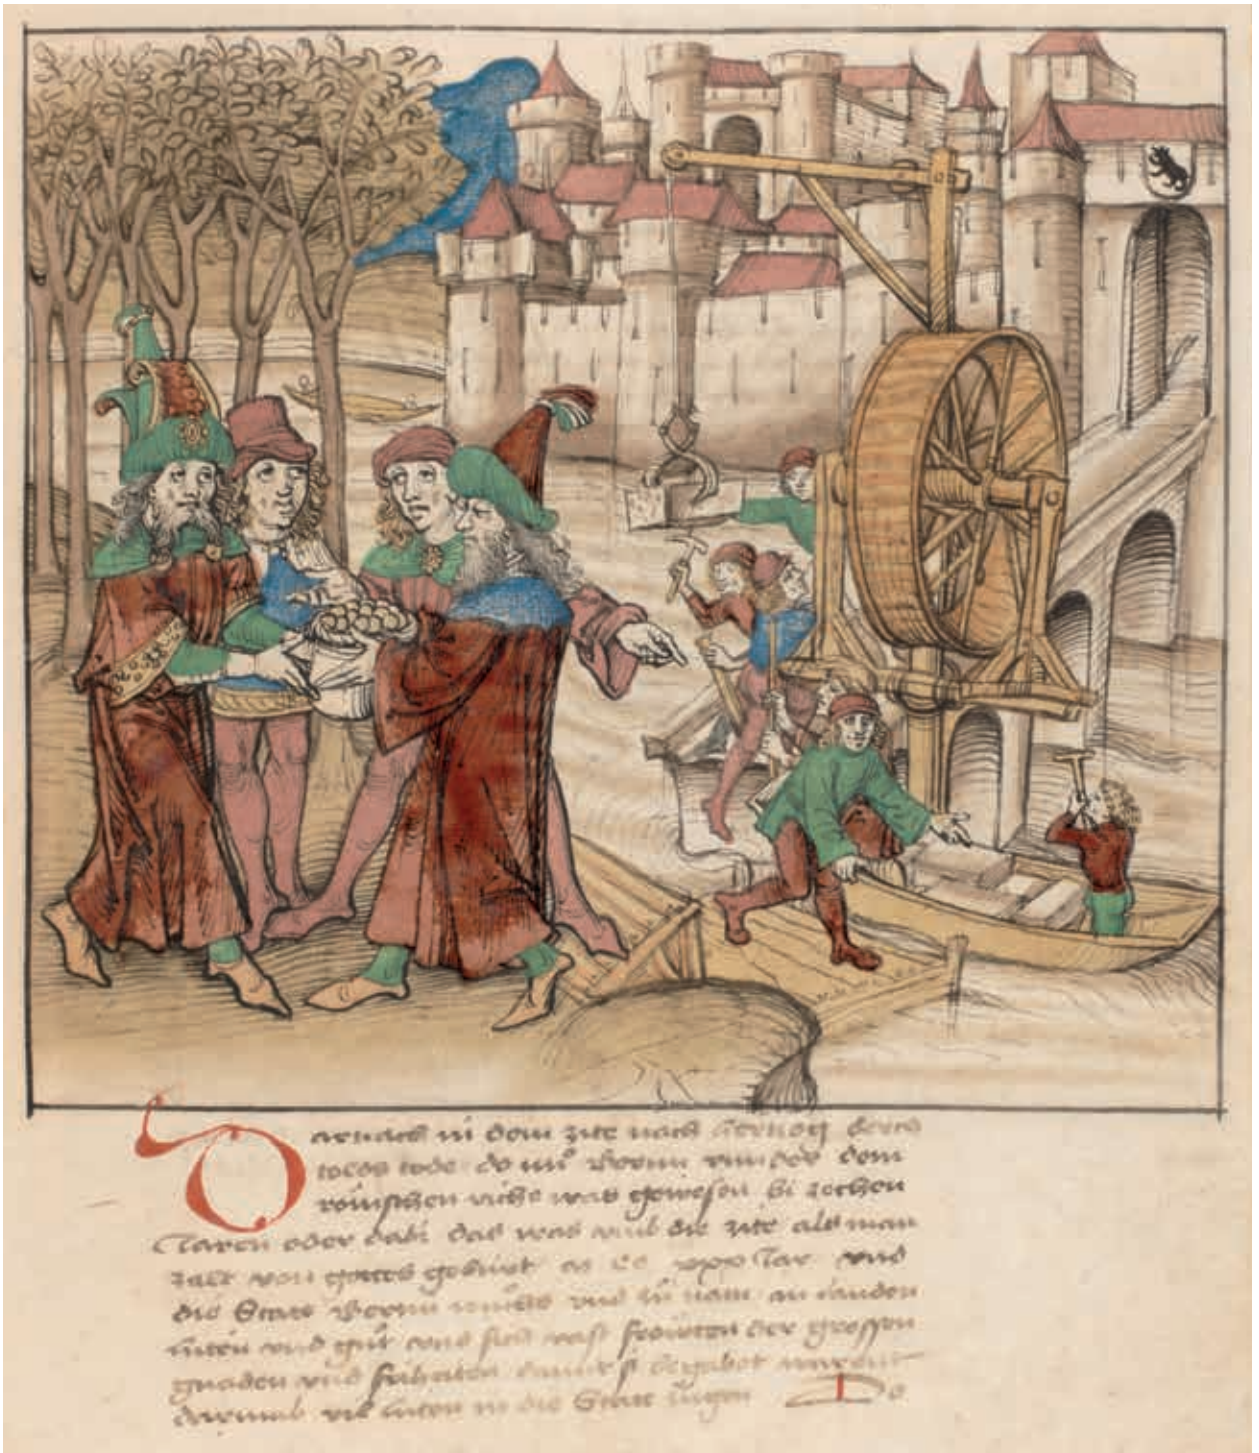 Darnach in dem zite nach hertzog Berch
toldes tode do nu Bernn vnnder dem
römischen riche was gewesen bi zechen
Jaren oder dabi das was vmb die zite als man
zalt von gottes geburt m cc xxx Jar vnd
die Statt Bernn vnd zů nam an landen
lüten vnd gůt vnd sich vast fröwten der grossen
gnaden vnd friheiten damit si begabet warent
darumb vil lüten in die Statt zugen Do